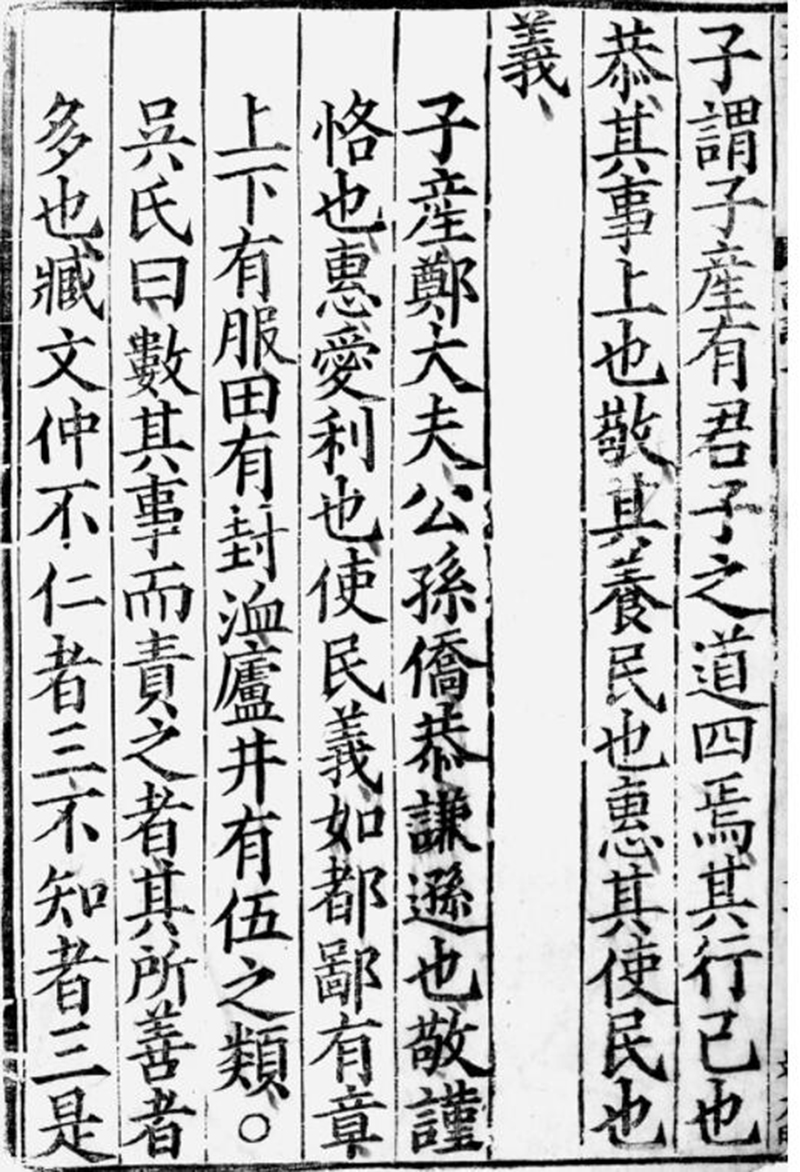 子謂子產有君子之道四焉其行己也
恭其事上也敬其養民也惠其使民也
義
子產鄭大夫公孫僑恭謙遜也敬謹
恪也惠愛利也使民義如都鄙有章
上下有服田有封洫廬井有伍之類○
吳氏曰數其事而責之者其所善者
多也臧文仲不仁者三不知者三是